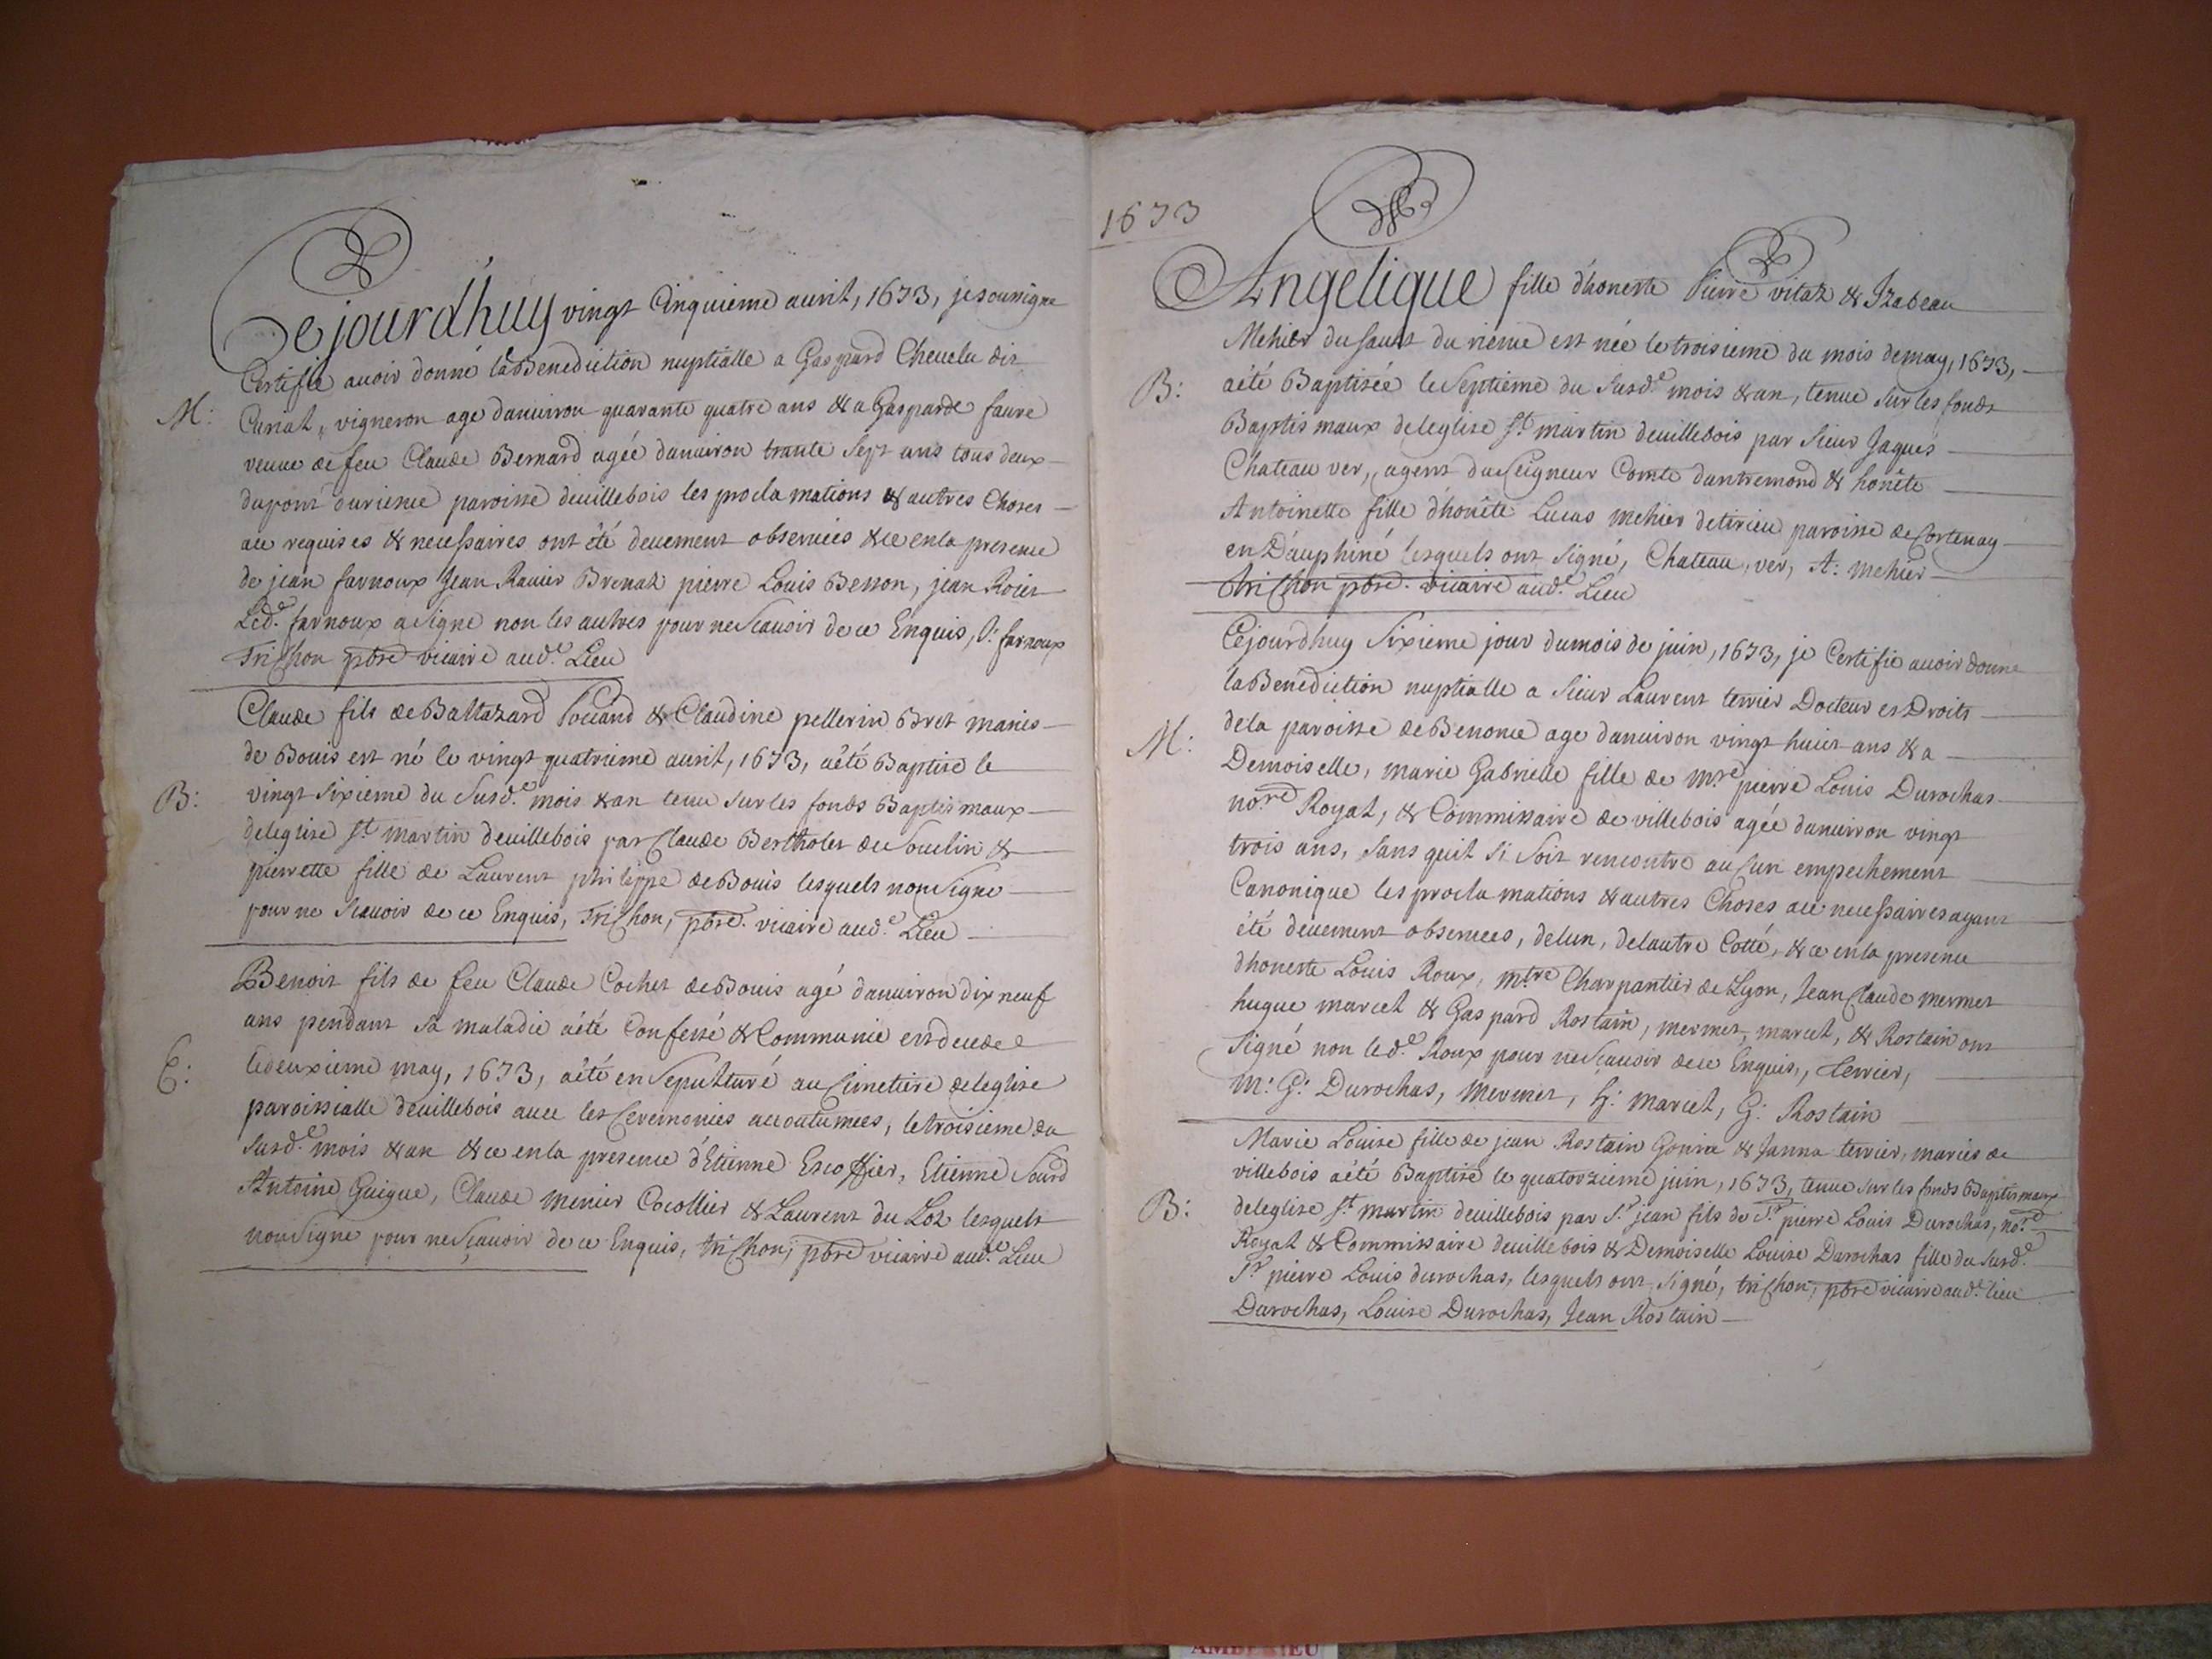 Cejourdhuy vingt Cinquieme auril, 1673, je soussigne
Certifie auoir donné la Benediction nuptialle a Gaspard Cheuelu dit
M: Cunat, vigneron age danuiron quarante quatre ans & a Gasparde faure
veuue de feu Claude Bernard agée danuiron trante Sept ans tous deux
dupont durieme paroisse deuillebois les proclamations & autres Choses
ace requises & necessaires ont été deuement obseruées & ce enla presence
de jean farnoux Jean Rauier Brenat pierre Louis Besson, jean Roiet
Led.e farnoux a signe non les autres pour ne Scauoir de ce Enquis, P: farnoux
Trichon pbre vicaire aud.e Lieu
Claude fils de Baltazard Poccand & Claudine pellerin Bret maries
de Bouis est né le vingt quatrieme auril, 1673, aété Baptisé le
B: vingt Sixieme du Susd.e mois & an tenu sur les fonds Baptismaux
deleglise St martin deuillebois par Claude Bertholet de Souclin &
pierrette fille de Laurent philippe de Bouis lesquels non Signe
pour ne Scauoir de ce Enquis, Trichon, pbre. vicaire aud.e Lieu
Benoit fils de feu Claude Cochet de Bouis agé danuiron dix neuf
ans pendant sa maladie aété Confessé & Communié est decedé
E: le deuxieme may, 1673, aété en Sepulturé au Cimetiere deleglise
paroissialle deuillebois auec les Ceremonies accoutumees, le troisieme du
Susd.e mois & an & ce enla presence d'Etienne Escoffier, Etienne Sourd
Antoine Guigue, Claude menier Cocollier & Laurent du Loz lesquels
non Signe pour ne Scauoir de ce Enquis, trichon, pbre vicaire aud.e Lieu
1673
Angelique fille d'honeste Pierre vitaz & Izabeau
Mehier du Saut du rieme est née le troisieme du mois demay, 1673,
B: aété Baptisée le Septieme du Susd.e mois & an, tenue Sur les fonds
Baptismaux deleglise St martin deuillebois par Sieur Jaques
Chateau ver, agent du Seigneur Comte dantremond & honête
Antoinette fille d'honête Lucas mehier detirieu paroisse de Cortenay
en Dauphiné lesquels ont Signé, Chateau, ver, A: mehier
Trichon pbre. vicaire aud.e Lieu
Cejourdhuy Sixieme jour dumois de juin, 1673, je Certifie auoir donne
la Benediction nuptialle a Sieur Laurent terrier Docteur es Droits
dela paroisse de Benonce age danuiron vingt huict ans & a
M: Demoiselle, marie Gabrielle fille de Mre pierre Louis Durochas
nore Royal, & Commissaire de villebois agée danuiron vingt
trois ans, Sans quil Si Soit rencontre aucun empechement
Canonique les proclamations & autres Choses ace necessaires ayant
été deuement obseruees, delun, delautre Cotté, & ce enla presence
dhoneste Louis Roux, mtre Charpantier de Lyon, Jean Claude mermet
hugue marcel & Gaspard Rostain, mermet, marcel, & Rostain ont
Signé non led.e Roux pour ne Scauoir dece Enquis, terrier,
M: G: Durochas, Mermet, h: marcel, G: Rostain
Marie Louise fille de jean Rostain Gonra & Janna terrier, mariés de
villebois aété Baptisé le quatorzieme juin, 1673, tenue sur les fonds Baptismaux
B: deleglise St martin deuillebois par Sr jean fils de Sr pierre Louis Durochas, nore
Royal & Commissaire deuillebois & Demoiselle Louise Durochas fille du Susd.e
Sr pierre Louis durochas, lesquels ont signé, trichon, pbre vicaire aud.e lieu
Durochas, Louise Durochas, Jean Rostain